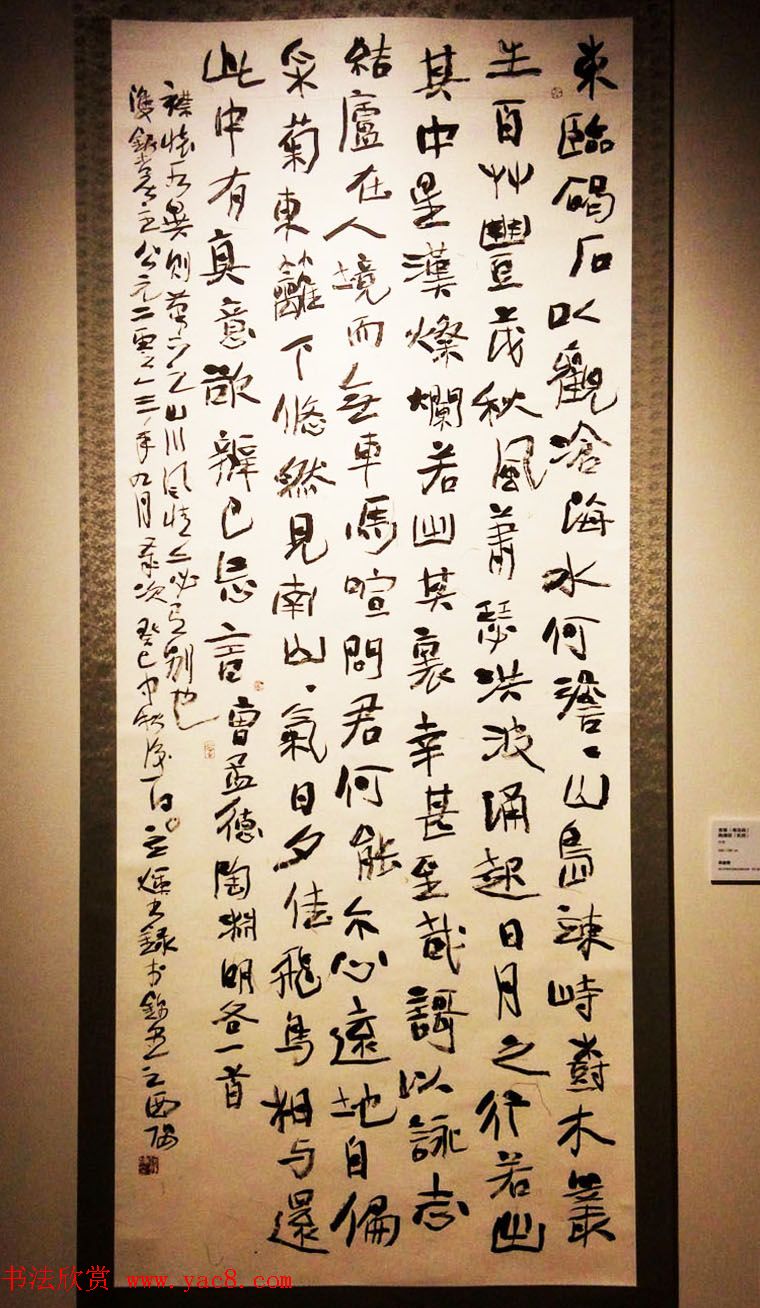 東臨碣石以觀滄海水何澹澹山島竦峙樹木叢
生百艸豐茂秋風蕭瑟洪波涌起日月之行若出
其中星漢燦爛若出其裏幸甚至哉謌以詠志
結廬在人境而無車馬喧問君何能尔心遠地自偏
采菊東籬下悠然見南山山氣日夕佳飛鳥相与還
此中有真意欲辨已忘言 曹孟德陶淵明各一首
襟懷有異則萬山川風情亦必有別也
公元二零一三年九月 歲次癸巳中秋後一日
书法欣赏 www.yac8.com